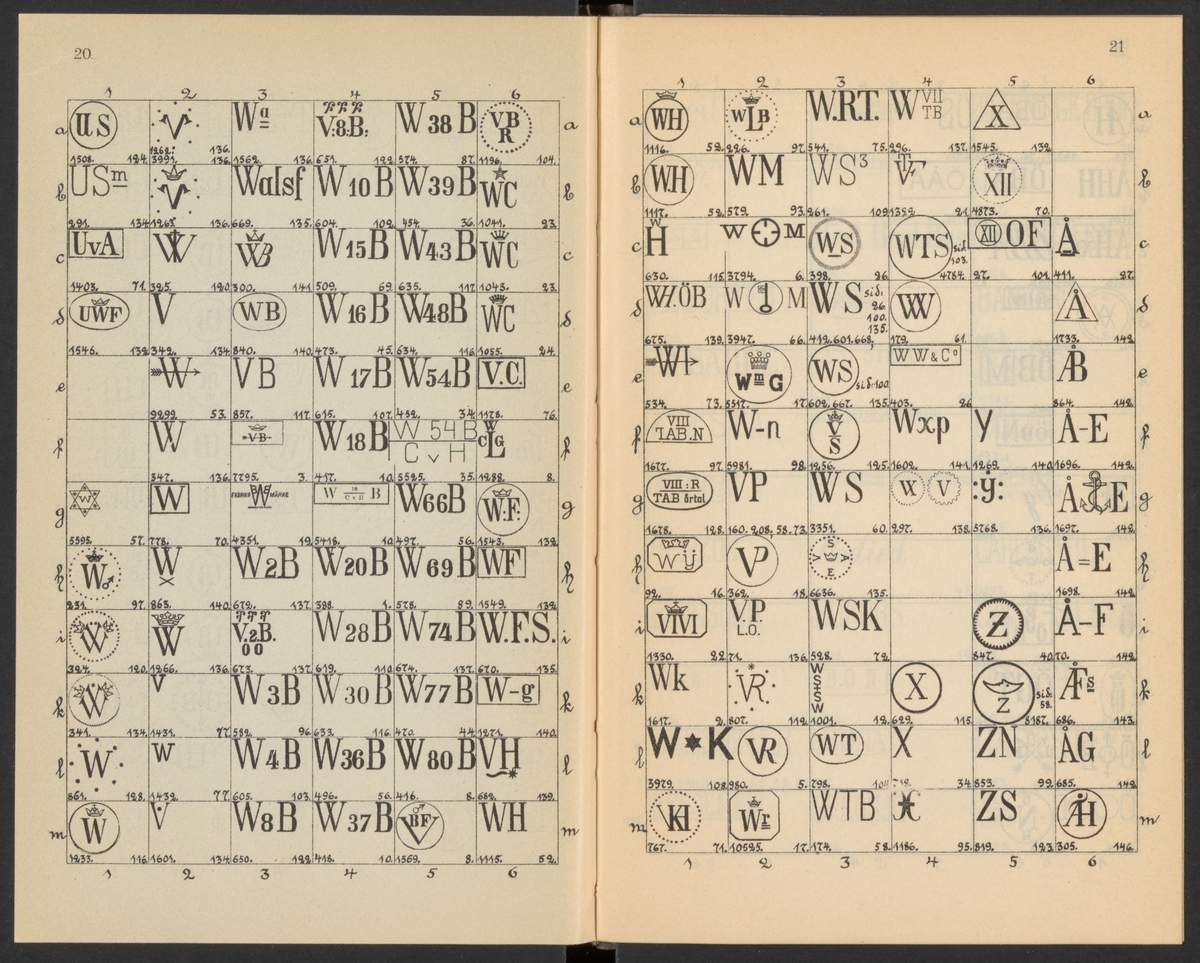 20
1 2 3 4 5 6
a US V Wa V:8:B: W 38 B VBR a
1508. 124. 1262. 3991. 136. 136. 1562. 136. 651. 122. 574. 87. 1196. 104.
b USm V Walsf W 10 B W 39 B WC b
291. 134. 1263. 136. 669. 135. 604. 102. 454. 36. 1041. 23.
c UvA W WB W 15 B W 43 B WC c
1403. 71. 325. 120. 300. 141. 509. 69. 635. 117. 1043. 23.
d UWF V WB W 16 B W48B WC d
1546. 139. 342. 134. 840. 140. 473. 45. 634. 116. 1055. 24.
e W VB W 17 B W54B V.C. e
9299. 53. 857. 117. 615. 107. 452. 34. 1178. 76.
f W VB W 18 B W 54 B CvH WCLG f
347. 136. 7795. 3. 417. 10. 5525. 35. 1288. 8.
g W W FABRIKS W MÄRKE W B W66B W.F. g
5595. 57. 778. 70. 4351. 19. 5418. 10. 497. 56. 1543. 139.
h W W W2B W 20 B W 69 B WF h
231. 97. 863. 140. 672. 137. 388. 1. 578. 89. 1549. 139.
i W W V.2.B. 00 W 28 B W 74 B W.F.S. i
324. 120. 1266. 136. 673. 137. 619. 110. 674. 137. 670. 135.
k W V W 3 B W 30 B W 77 B W-g k
341. 134. 1431. 77. 582. 96. 633. 116. 470. 44. 1271. 140.
l W W W 4 B W36B W 80 B VH l
861. 128. 1432. 77. 605. 103. 496. 56. 416. 8. 682. 139.
m W V W8B W 37 B BF V WH m
1233. 116. 1601. 134. 650. 122. 418. 10. 1569. 8. 1115. 52.
1 2 3 4 5 6
21
1 2 3 4 5 6
a WH WLB W.R.T. W VII TB X a
1116. 52. 226. 97. 541. 75. 296. 137. 1545. 132.
b W.H WM WS3 XII b
1117. 52. 579. 93. 261. 109. 1352. 21. 4873. 70.
c WH W M WS WTS sid. 103. XII OF Å c
630. 115. 3794. 6. 398. 26. 4784. 27. 101. 411. 27.
d W.ÖB W M WS sid: 26. 100. 135. W Å d
675. 139. 3947. 66. 412.601.668. 179. 61. 1733. 142.
e WI WmG WS sid:100. WW & Co ÅB e
534. 73. 5517. 17. 602. 667. 135. 403. 26. 864. 142.
f VIII TAB.N W-n VS Wxp y Å-E f
1677. 97. 5981. 98. 1256. 125. 1602. 141. 1269. 140. 1696. 142.
g VIII:R TAB örtal VP WS W V :y: Å E g
1678. 128. 160. 208, 58, 73. 3351. 60. 297. 138. 5768. 136. 1697. 142.
h WY VP S A V E Å=E h
92. 16. 362. 18. 6636. 135. 1698. 142.
i VIVI V.P. L.O. WSK Z Å-F i
1330. 22. 71. 136. 528. 72. 847. 40. 70. 142.
k Wk VR X Z sid. 58. ÅFs k
1617. 2. 807. 112. 1001. 12. 629. 115. 8187. 686. 143.
l W K VR WT X ZN ÅG l
3979. 108. 980. 5. 798. 718. 34. 853. 99. 685. 142.
m KH Wr WTB ZS ÅH m
767. 71. 10525. 17. 174. 58. 1186. 95. 819. 123. 305. 146.
1 2 3 4 5 6